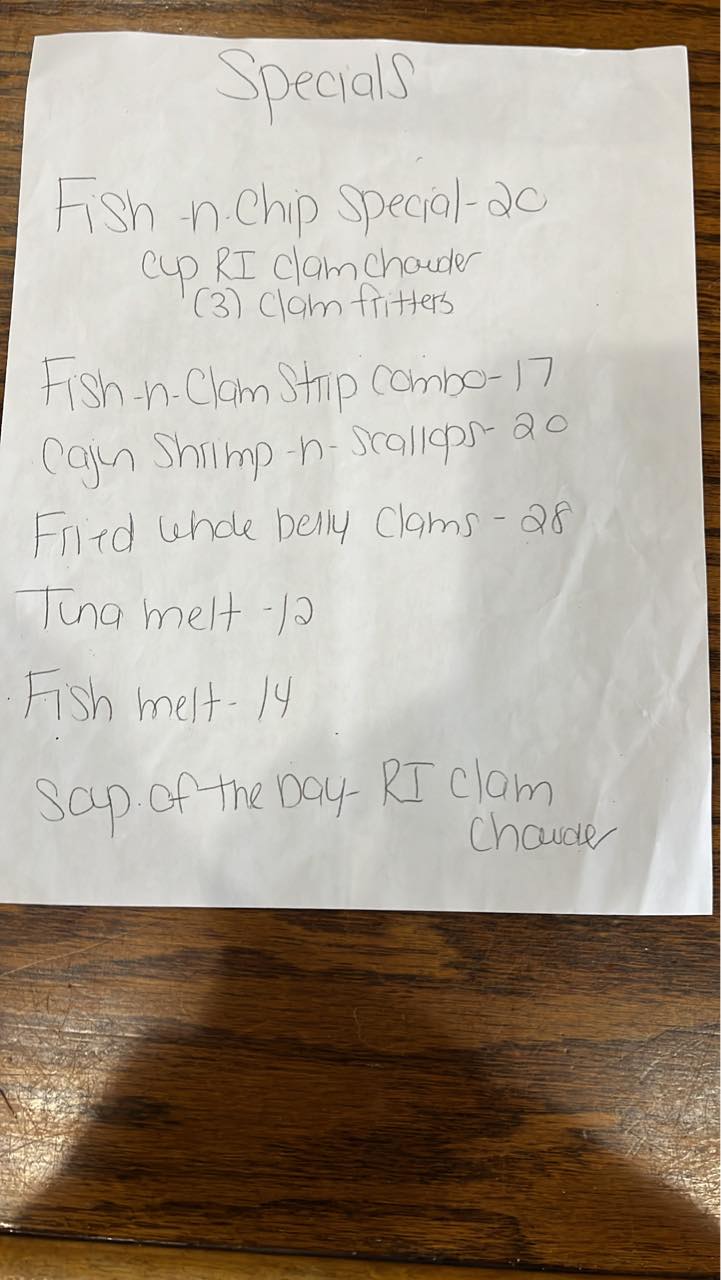 Specials
Fish -n- Chip Special - 20
cup RI clam chowder
(3) clam fritters
Fish -n- Clam Strip combo - 17
Cajun Shrimp -n- scallops - 20
Fried whole belly clams - 28
Tuna melt - 12
Fish melt - 14
Soup of the Day - RI clam
chowder